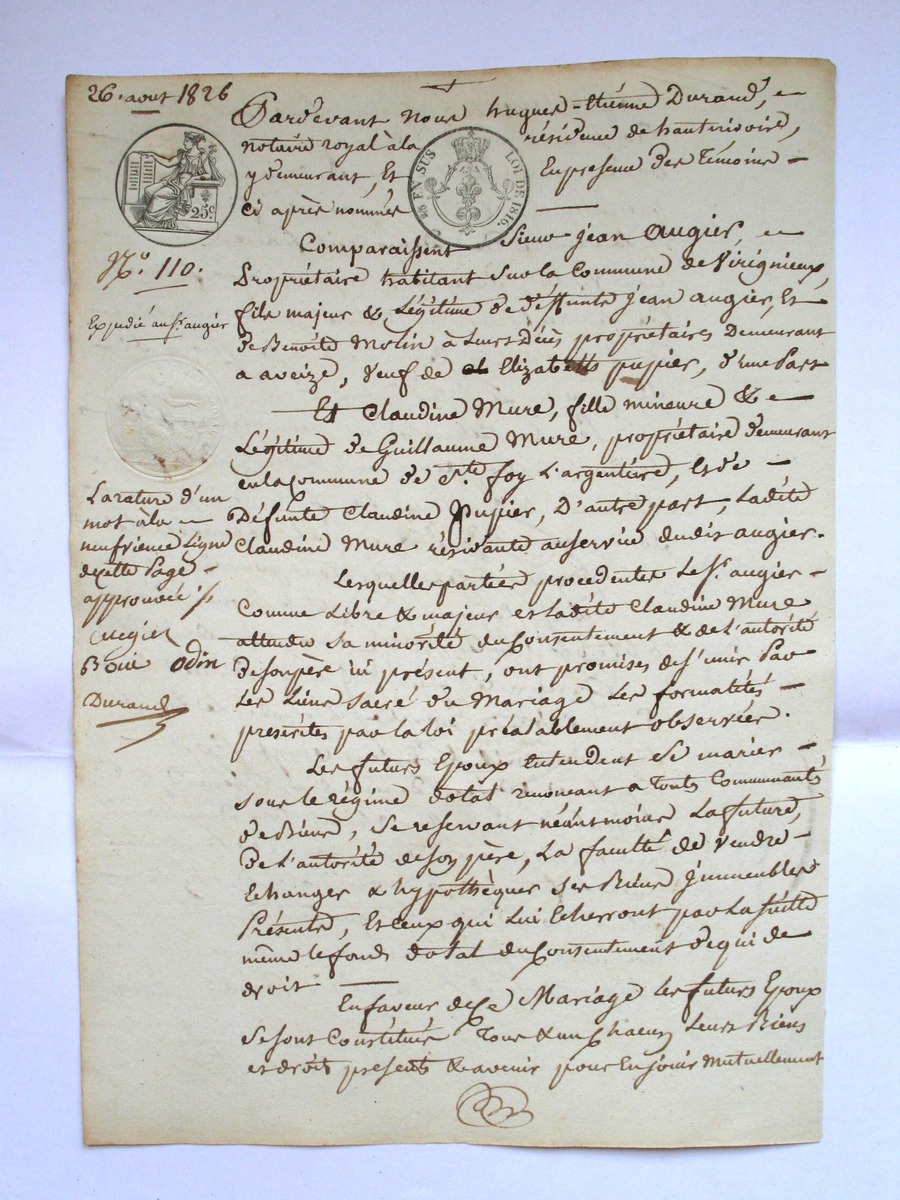 26. aout 1826
Pardevant nous hugues-etienne Durand,
notaire royal à la résidence de hauterivoire,
y demeurant, Et En presence des Témoins
ci après nommés
25c
25 EN SUS LOI DE 1816.
Comparaissent Sieur jean augier,
Propriétaire habitant Sur la Commune de Virignieux,
fils majeur & Légitime de déffunts jean augier, Et
de Benoite Molin à Leurs Décès propriétaires Demeurant
a aveize, veuf de Elizabeth pupier, d'une Part
Et Claudine Mure, fille mineure &
Légitime de Guillaume Mure, propriétaire demeurant
en la Commune de Ste. foy L'argentière, Et de
Défunte Claudine Pupier, D'autre part, Ladite
Claudine Mure résidante au service dudit augier.
Lesquelles parties procedentes Le Sr. augier
Comme Libre & majeur et Ladite Claudine Mure
attendu sa minorité du Consentement & de L'autorité
de son père ici présent, ont promises de s'unir Par
Les Liens sacré du Mariage Les formalités
prescrites par la loi préalablement observées.
Les futurs Epoux Entendent se marier
sous le régime dotal renonceant a Touts Communauté
de Biens, se reservant néantmoins La future,
de L'autorité de son père, La faculté de Vendre
Echanger & hypothèquer ses Biens jmmeubles
Présents, Et ceux qui Lui Echerront par La suitte
même le fonds dotal du Consentement de qui de
droit
En faveur de Ce Mariage Les futurs Epoux
se sont Constitués Tous & un chacun Leurs Biens
et droit presents & avenir pour En jouir Mutuellement
No. 110.
Expédié au Sr. augier
La rature d'un
mot à la
neufvieme Ligne
de cette Page
approuvée
augier
Odin
Durand